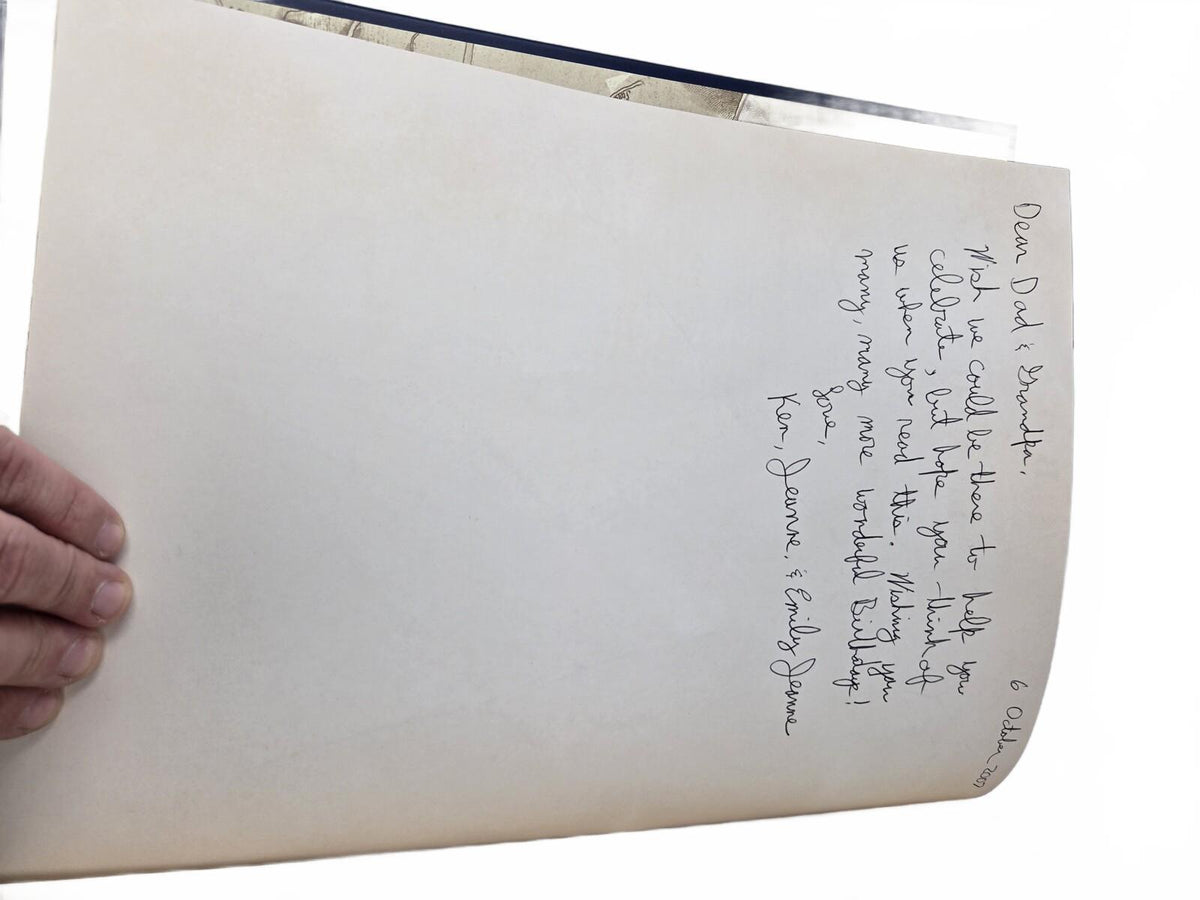 6 October 2001
Dear Dad & Grandpa,
Wish we could be there to help you
celebrate, but hope you think of
us when you read this. Wishing you
many, many more wonderful Birthdays!
Love,
Ken, Jeanne, & Emily Jeanne